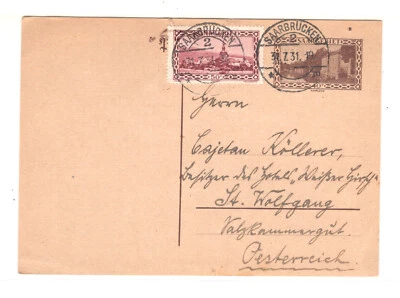 SAARBRÜCKEN
2
SAARBRÜCKEN
2
31.7.31.
Herrn
Cajetan Köllerer,
Besitzer des Hotels "Weißer Hirsch"
St. Wolfgang
Salzkammergut.
Oesterreich.